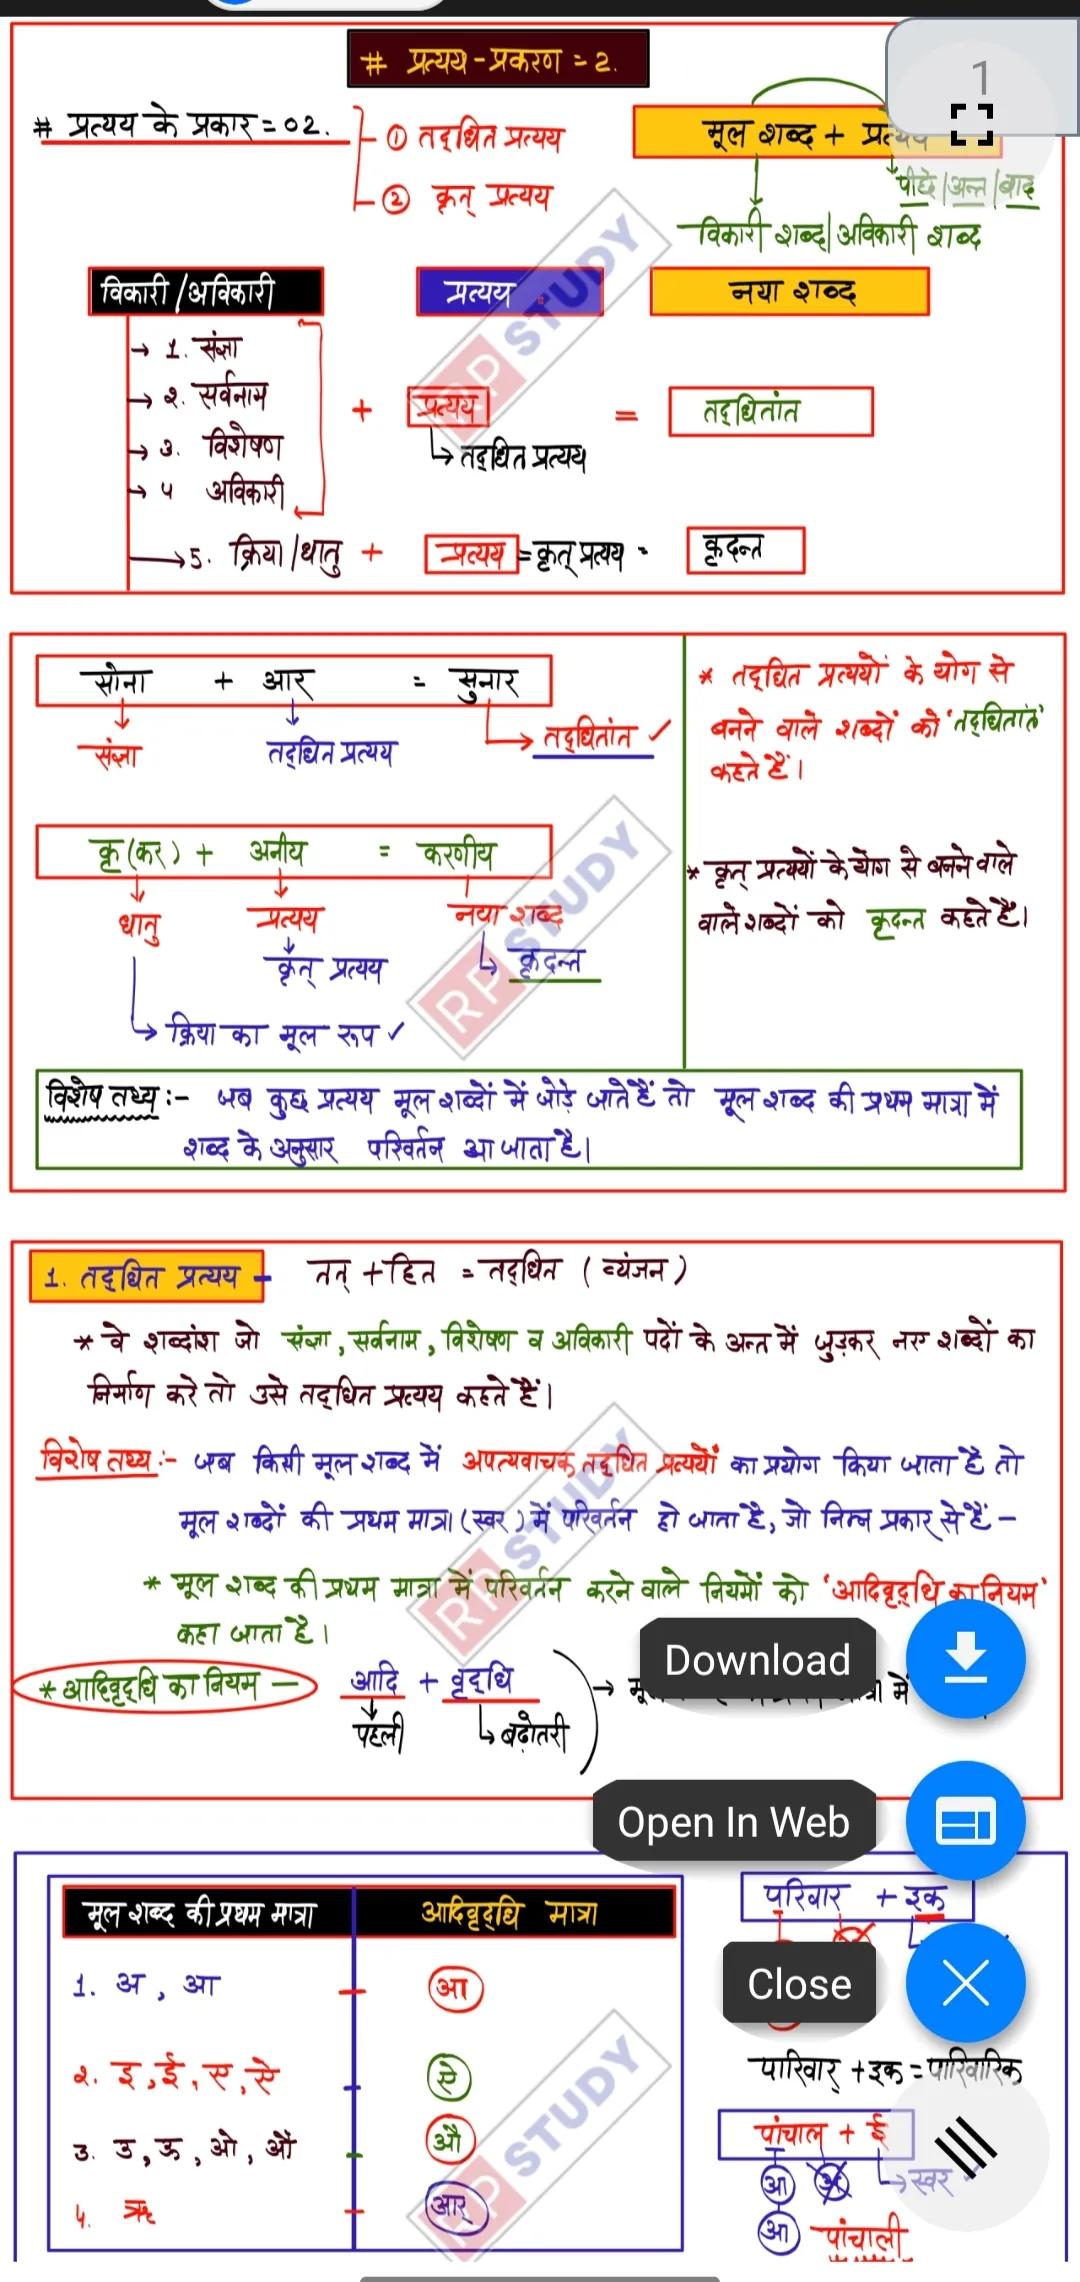 # प्रत्यय-प्रकरण = 2.
1
# प्रत्यय के प्रकार = 02.
① तद्धित प्रत्यय
② कृत् प्रत्यय
मूल शब्द +
पीछे/अन्त/बाद
विकारी शब्द/अविकारी शब्द
विकारी/अविकारी
प्रत्यय
नया शब्द
→ 1. संज्ञा
→ 2. सर्वनाम
→ 3. विशेषण
→ 4 अविकारी
+ प्रत्यय = तद्धितांत
↳ तद्धित प्रत्यय
→ 5. क्रिया/धातु + प्रत्यय = कृत् प्रत्यय - कृदन्त
सोना + आर = सुनार
संज्ञा
तद्धित प्रत्यय
→ तद्धितांत ✓
कृ (कर) + अनीय = करणीय
धातु
प्रत्यय
नया शब्द
कृत् प्रत्यय
↳ कृदन्त
↳ क्रिया का मूल रूप ✓
* तद्धित प्रत्ययों के योग से
बनने वाले शब्दों को 'तद्धितांत'
कहते हैं।
* कृत् प्रत्ययों के योग से बनने वाले
वाले शब्दों को कृदन्त कहते हैं।
विशेष तथ्य :- जब कुछ प्रत्यय मूल शब्दों में जोड़े जाते हैं तो मूल शब्द की प्रथम मात्रा में
शब्द के अनुसार परिवर्तन आ जाता है।
1. तद्धित प्रत्यय - तत् + हित = तद्धित (व्यंजन)
* वे शब्दांश जो संज्ञा, सर्वनाम, विशेषण व अविकारी पदों के अन्त में जुड़कर नए शब्दों का
निर्माण करे तो उसे तद्धित प्रत्यय कहते हैं।
विशेष तथ्य :- जब किसी मूल शब्द में अपत्यवाचक तद्धित प्रत्ययों का प्रयोग किया जाता है तो
मूल शब्दों की प्रथम मात्रा (स्वर) में परिवर्तन हो जाता है, जो निम्न प्रकार से हैं -
* मूल शब्द की प्रथम मात्रा में परिवर्तन करने वाले नियमों को 'आदिवृद्धि का नियम'
कहा जाता है।
* आदिवृद्धि का नियम - आदि + वृद्धि →
में
पहली
↳ बढ़ोतरी
Download
Open In Web
Close
मूल शब्द की प्रथम मात्रा
आदिवृद्धि मात्रा
1. अ, आ - आ
2. इ, ई, ए, ऐ - ऐ
3. उ, ऊ, ओ, औ - औ
4. ऋ - आर्
परिवार + इक
पारिवार् + इक = पारिवारिक
पांचाल + ई
आ
→ स्वर
आ पांचाली
RP STUDY
RP STUDY
RP STUDY
RP STUDY